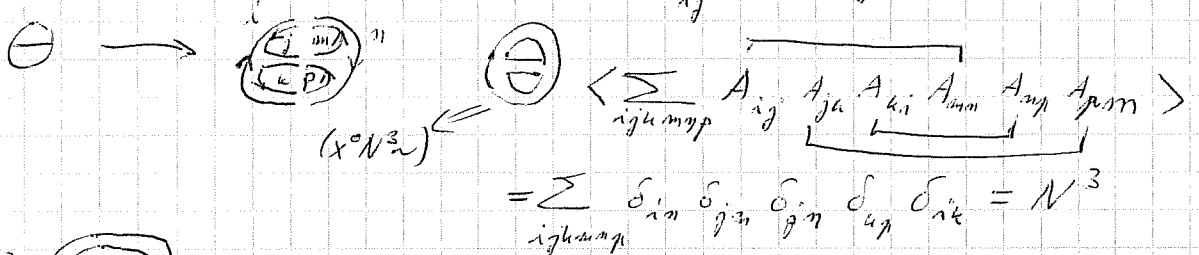 i
j m n
k p
< Σ_{ijkmnp} A_{ij} A_{jk} A_{ki} A_{mn} A_{np} A_{pm} >
(x⁰N³~)
= Σ_{ijkmnp} δ_{in} δ_{jm} δ_{jm} δ_{kp} δ_{ik} = N³